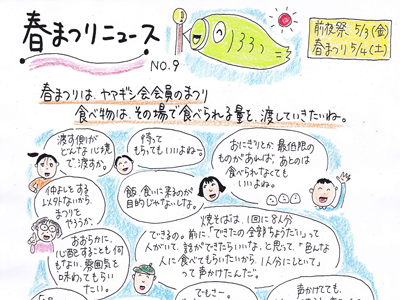 春まつりニュース
NO.9
前夜祭 5/3(金)
春まつり 5/4(土)
春まつりは、ヤマギシ会会員のまつり
食べ物は、その場で食べられる量を、渡していきたいね。
渡す側が
どんな心境
で渡すか。
待って
もらってもいいよねー。
おにぎりとか、最低限の
ものがあれば、あとは
食べられなくても
いいよね。
仲よしをする
以外ないから、
まつりを
やろうか。
飯食いに来るのが
目的じゃないしな。
おおらかに、
心配することも何
もない、雰囲気を
味わってもらい
たい。
焼そばは、1回に8人分
できるの。前に「できたの全部ちょうだい」って
人がいて、話ができたらいいな、と思って、「色んな
人に食べてもらいたいから、1人分にしといて」
って声かけたんだ。
でもさー、
声かけても、